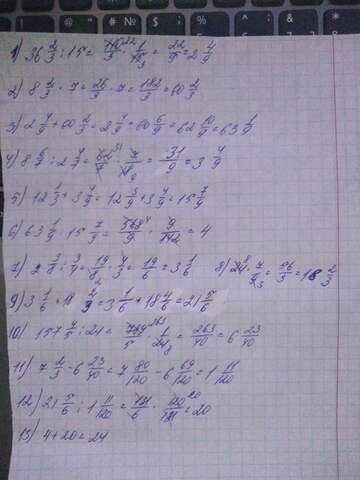 1) 36 2/3 : 15 = 110/3 · 1/15 = 22/9 = 2 4/9
2) 8 2/3 · 7 = 26/3 · 7 = 182/3 = 60 2/3
3) 2 4/9 + 60 2/3 = 2 4/9 + 60 6/9 = 62 10/9 = 63 1/9
4) 8 6/7 : 2 4/7 = 62/7 · 7/18 = 31/9 = 3 4/9
5) 12 1/3 + 3 4/9 = 12 3/9 + 3 4/9 = 15 7/9
6) 63 1/9 : 15 7/9 = 568/9 · 9/142 = 4
7) 2 3/8 : 3/4 = 19/8 · 4/3 = 19/6 = 3 1/6 8) 24 · 7/9 = 56/3 = 18 2/3
9) 3 1/6 + 18 2/3 = 3 1/6 + 18 4/6 = 21 5/6
10) 157 4/5 : 24 = 789/5 · 1/24 = 263/40 = 6 23/40
11) 7 2/3 - 6 23/40 = 7 80/120 - 6 69/120 = 1 11/120
12) 21 5/6 : 1 11/120 = 131/6 · 120/131 = 20
13) 4 + 20 = 24